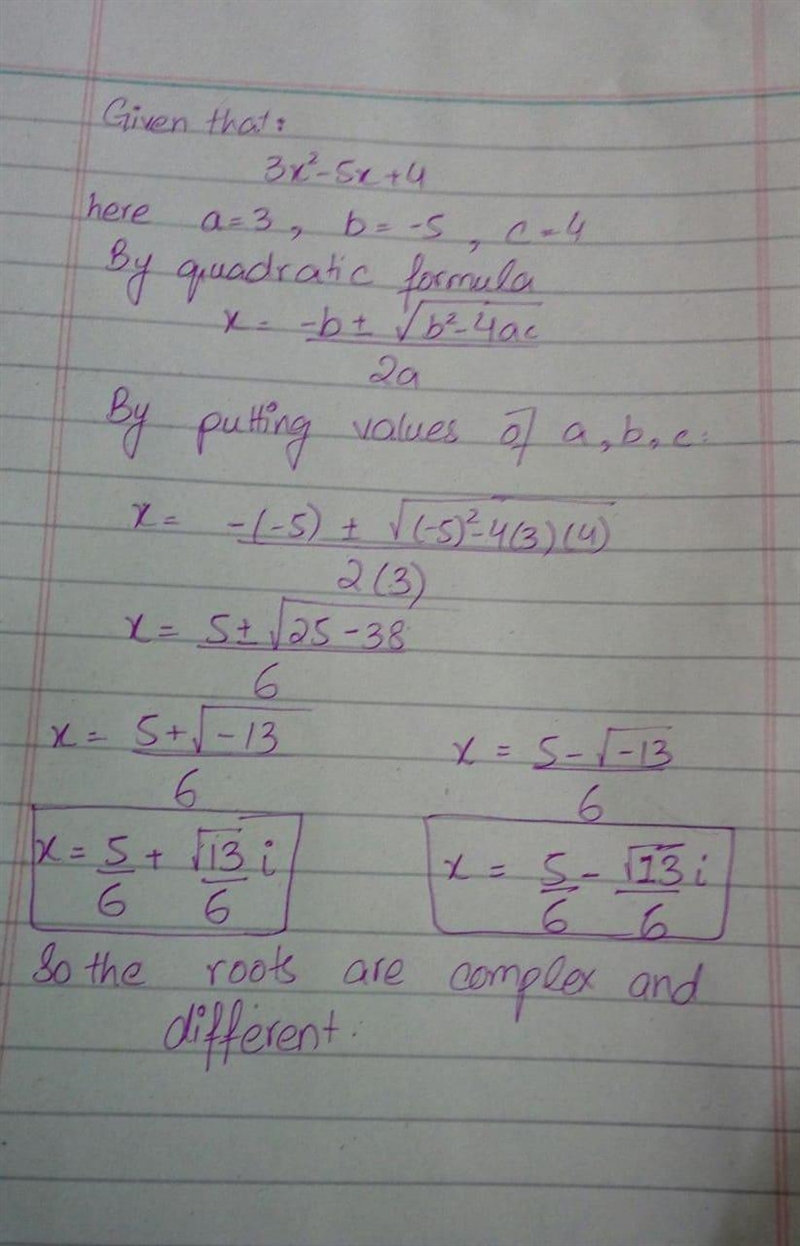 Given that:
3x²-5x+4
here a=3, b=-5, c=4
By quadratic formula
x = -b ± √b²-4ac
2a
By putting values of a, b, c.
x = -(-5) ± √(-5)²-4(3)(4)
2(3)
x = 5±√25-38
6
x = 5+√-13 x = 5-√-13
6 6
x = 5/6 + √13/6 i x = 5/6 - √13/6 i
So the roots are complex and
different.